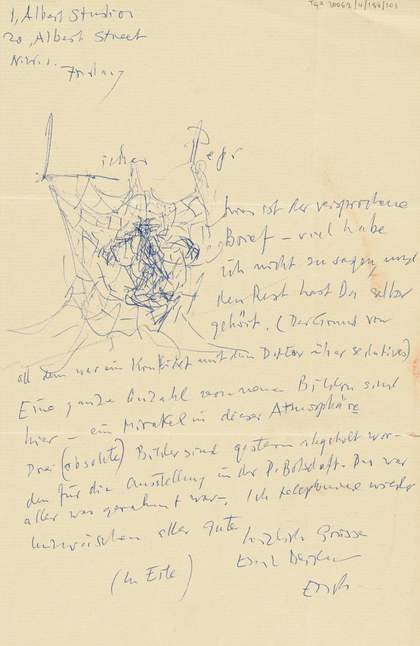 TGA 20062/4/156/101
1, Albert Studios
20, Albert Street
N.W.1.
Freitag
Lieber
hier ist der versprochene
Brief – viel habe
ich nicht zu sagen und
den Rest hast Du selber
gehört. (Der Grund von
all dem war ein Konflikt mit dem Doktor über sedatives)
Eine ganze Anzahl von neuen Bildern sind
hier – ein Mirakel in dieser Atmosphäre
Drei (obsolete) Bilder sind gestern abgeholt wor-
den für die Ausstellung in der D. Botschaft. Das war
alles was gerahmt war. Ich telephoniere wieder
inzwischen alles gute
herzliche Grüsse
(In Eile)